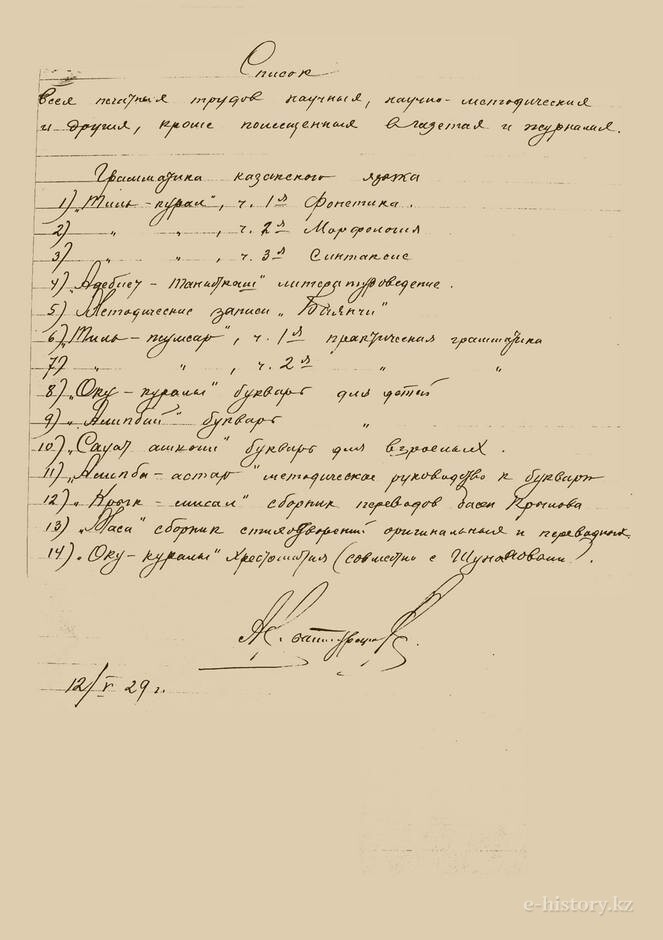 Список
Всех печатных трудов научных, научно-методических
и других, кроме помещенных в газетах и журналах.
Грамматика казакского языка
1) "Тиль-курал", ч. 1я Фонетика.
2) " " , ч. 2я Морфология
3) " " , ч. 3я Синтаксис
4) "Адебиет-таниткаш" литературоведение.
5) Методические записи "Баянчи"
6) "Тиль-жумсар", ч. 1я практическая грамматика
7) " " , ч. 2я " "
8) "Оку-куралы" букварь для детей
9) "Алипбий" букварь "
10) "Сауат ашкыш" букварь для взрослых.
11) "Алипби-астар" методическое руководство к букварю
12) "Кырык-мысал" сборник переводов басен Крылова
13) "Маса" сборник стихотворений оригинальных и переводных.
14) "Оку-куралы" хрестоматия (совместно с Шунановым).
12/V 29 г.
e-history.kz